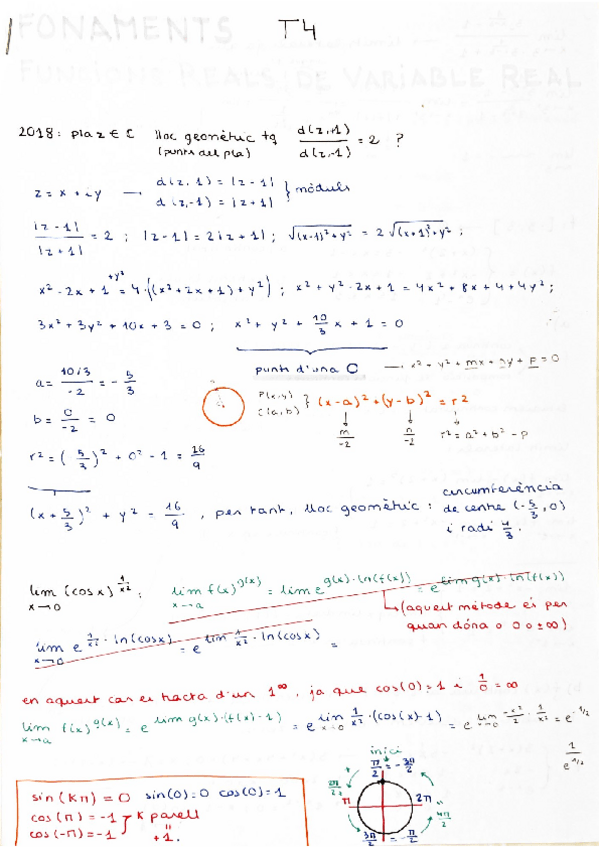 FONAMENTS T4
FUNCIONS REALS DE VARIABLE REAL
2018: pla z ∈ ℂ lloc geomètric tq d(z,+1)/d(z,-1) = 2 ?
(punts del pla)
z = x + iy → d(z,1) = |z-1| } mòduls
d(z,-1) = |z+1|
|z-1|/|z+1| = 2 ; |z-1| = 2|z+1| ; √((x-1)²+y²) = 2√((x+1)²+y²) ;
x² - 2x + 1 +y² = 4·((x²+2x+1)+y²) ; x² + y² - 2x + 1 = 4x² + 8x + 4 + 4y² ;
3x² + 3y² + 10x + 3 = 0 ; x² + y² + 10/3 x + 1 = 0
punts d'una C → x² + y² + mx + ny + p = 0
a = 10/3 / -2 = - 5/3
P(x,y) } (x-a)² + (y-b)² = r²
C(a,b)
b = 0/-2 = 0
m/-2 n/-2 r² = a² + b² - p
r² = (5/3)² + 0² - 1 = 16/9
(x + 5/3)² + y² = 16/9 , per tant, lloc geomètric : circumferència
de centre (-5/3, 0)
i radi 4/3.
lim x→0 (cosx)^1/x² ; lim x→a f(x)^g(x) = lim e^g(x)·ln(f(x)) = e^lim g(x)·ln(f(x))
(aquest mètode és per
quan dóna 0 o ±∞)
lim x→0 e^1/x² · ln(cosx) = e^lim 1/x² · ln(cosx) =
en aquest cas es tracta d'un 1^∞, ja que cos(0)=1 i 1/0 = ∞
lim x→a f(x)^g(x) = e^lim g(x)·(f(x)-1) = e^lim x→0 1/x²·(cos(x)-1) = e^lim x→0 -x²/2 · 1/x² = e^-1/2
1/e^1/2
inici
π/2 = -3π/2
sin(kπ) = 0 sin(0)=0 cos(0)=1
π 2π
cos(π) = -1 } k parell
cos(-π) = -1 " +1.
4π/2
3π/2 = -π/2